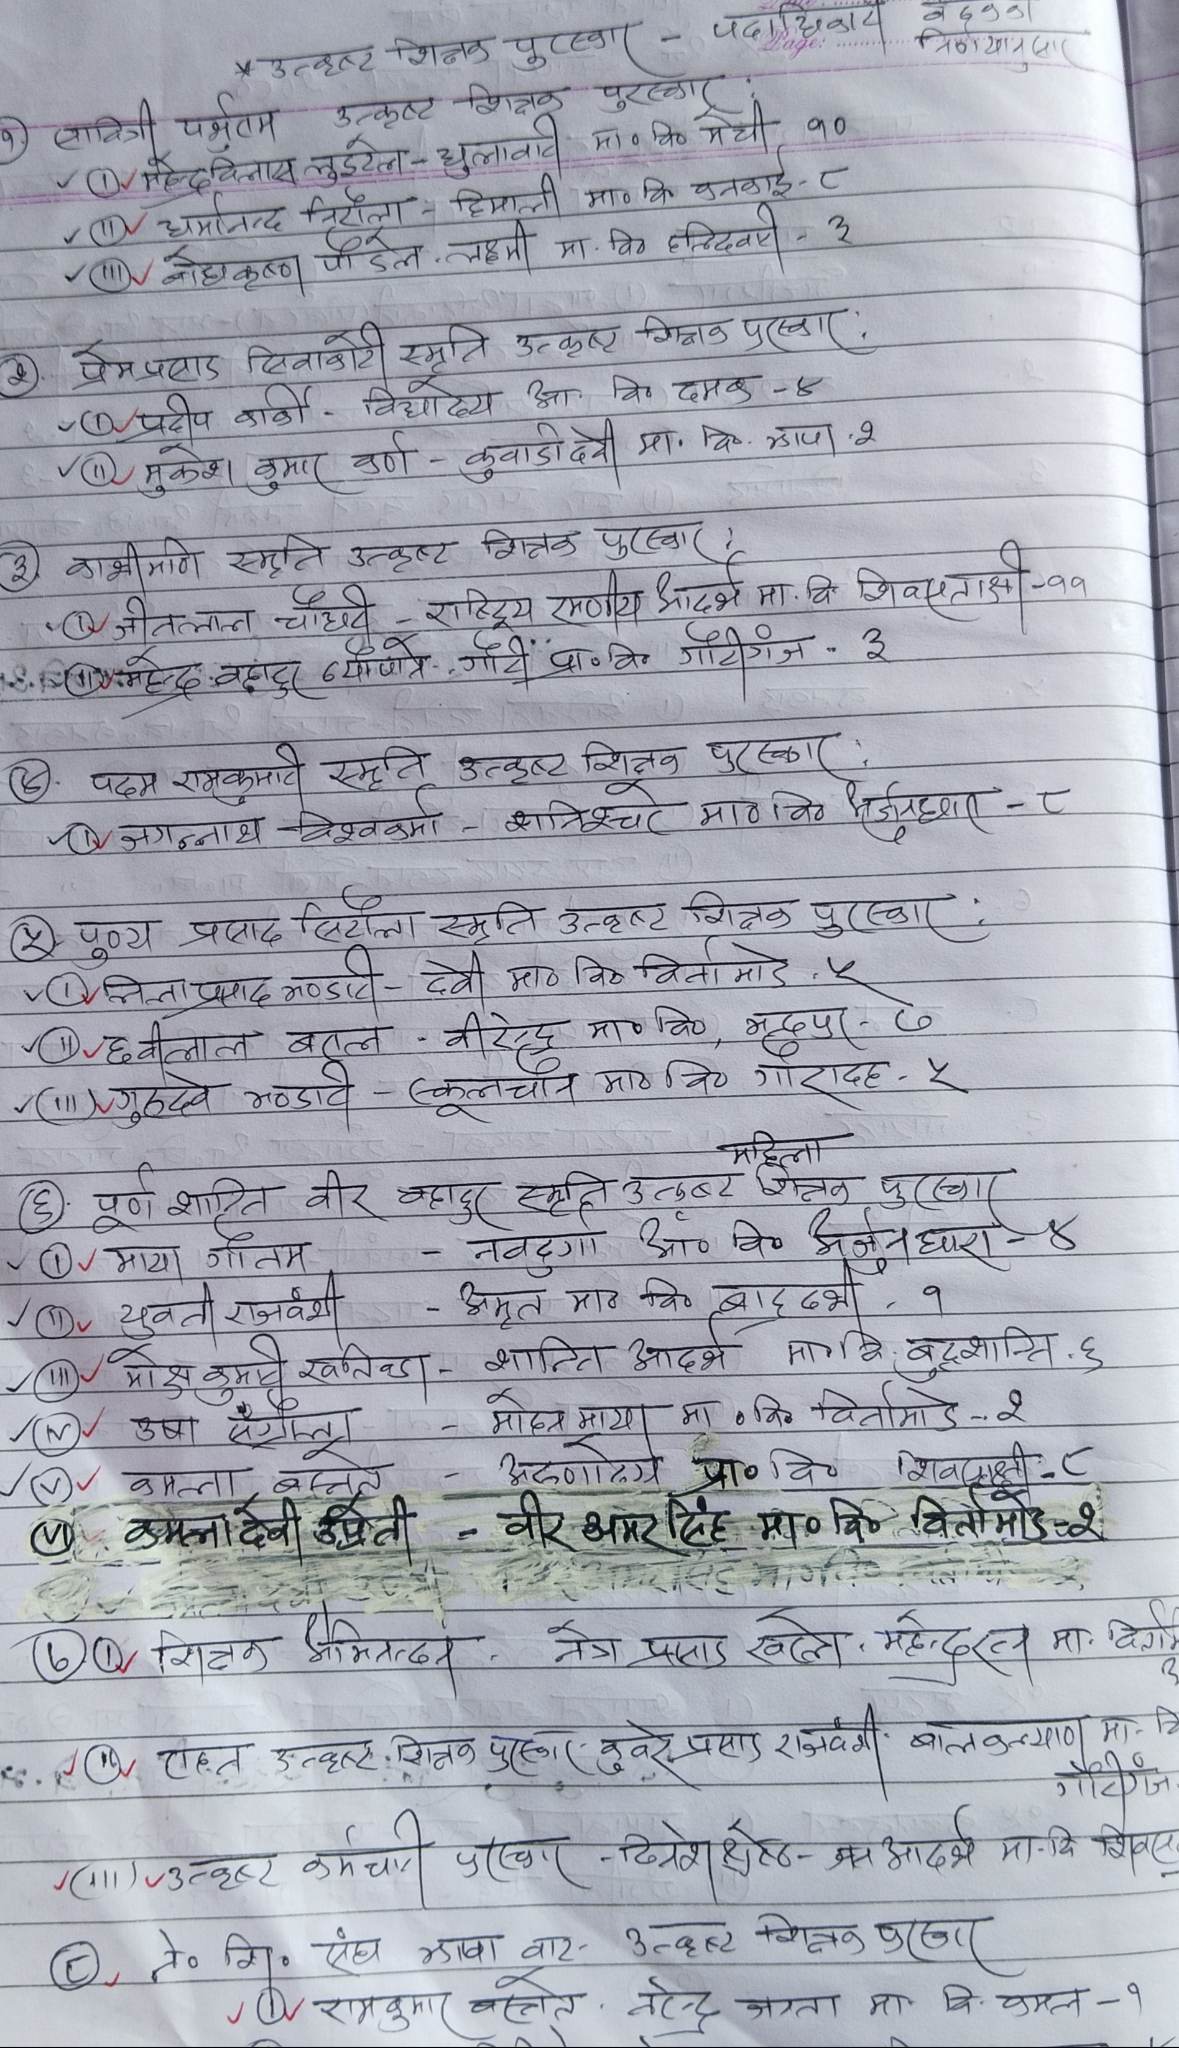 * उत्कृष्ट शिक्षक पुरस्कार - पदाधिकारी बैठकको
Page: निर्णयानुसार
१) सावित्री पर्भुराम उत्कृष्ट शिक्षक पुरस्कार :
(I) महेन्द्रविलास लुईटेल - धुलाबारी मा० वि० मेची १०
(II) धर्मानन्द निरौला - हिमाली मा० वि कनकाई - ८
(III) बोधकृष्ण पौडेल - लक्ष्मी मा. वि० हल्दिबारी - ३
२). प्रेमप्रसाद सिवाकोटी स्मृति उत्कृष्ट शिक्षक पुरस्कार :
(I) प्रदीप कार्की - विद्योदय आ. वि० दमक - ४
(II) मुकेश कुमार कर्ण - कुवाडीदेवी मा. वि. झापा - २
३) काशीमणि स्मृति उत्कृष्ट शिक्षक पुरस्कार :
(I) जीतलाल चौधरी - राष्ट्रिय रमणीय आदर्श मा. वि शिवसताक्षी - ११
(II) महेन्द्र बहादुर - गौरी प्रा० वि० गौरीगंज - ३
४). पदम रामकुमारी स्मृति उत्कृष्ट शिक्षक पुरस्कार :
(I) जगन्नाथ विश्वकर्मा - शनिश्चरे मा० वि० अर्जुनधारा - ८
५) पुण्य प्रसाद सिटौला स्मृति उत्कृष्ट शिक्षक पुरस्कार :
(I) लिलाप्रसाद भण्डारी - देवी मा० वि० विर्तामोड - ५
(II) छवीलाल बराल - वीरेन्द्र मा० वि०, भद्रपुर - ७
(III) गुरुदेव भण्डारी - स्कूलचौन मा० वि० गौरादह - ५
महिला
६). पूर्ण शान्ति वीर बहादुर स्मृति उत्कृष्ट शिक्षक पुरस्कार
(I) माया गौतम - नवदुर्गा आ० वि० अर्जुनधारा - ४
(II) युवती राजवंशी - अमृत मा० वि० बाह्रदशी - १
(III) मोक्ष कुमारी खतिवडा - शान्ति आदर्श मा० वि. बुद्धशान्ति - ६
(IV) उषा संग्रौला - मोहनमाया मा० वि० विर्तामोड - २
(V) कमला बस्नेत - अरुणोदय प्रा० वि० शिवसताक्षी - ८
(VI) कमलादेवी उप्रेती - वीर अमर सिंह मा० वि० विर्तामोड - २
७ (I) शिक्षक अभिनन्दन - नेत्र प्रसाद खरेल - महेन्द्ररत्न मा. विर्ताम
३
(II) राहत उत्कृष्ट शिक्षक पुरस्कार कुवेर प्रसाद राजवंशी - बालकल्याण मा. वि
गौरीगंज
(III) उत्कृष्ट कर्मचारी पुरस्कार - दिनेश श्रेष्ठ - आदर्श मा. वि शिवस
८) ने० शि० संघ झापा वाट - उत्कृष्ट शिक्षक पुरस्कार
(I) रामकुमार बस्नेत - नरेन्द्र जनता मा. वि. कमल - १